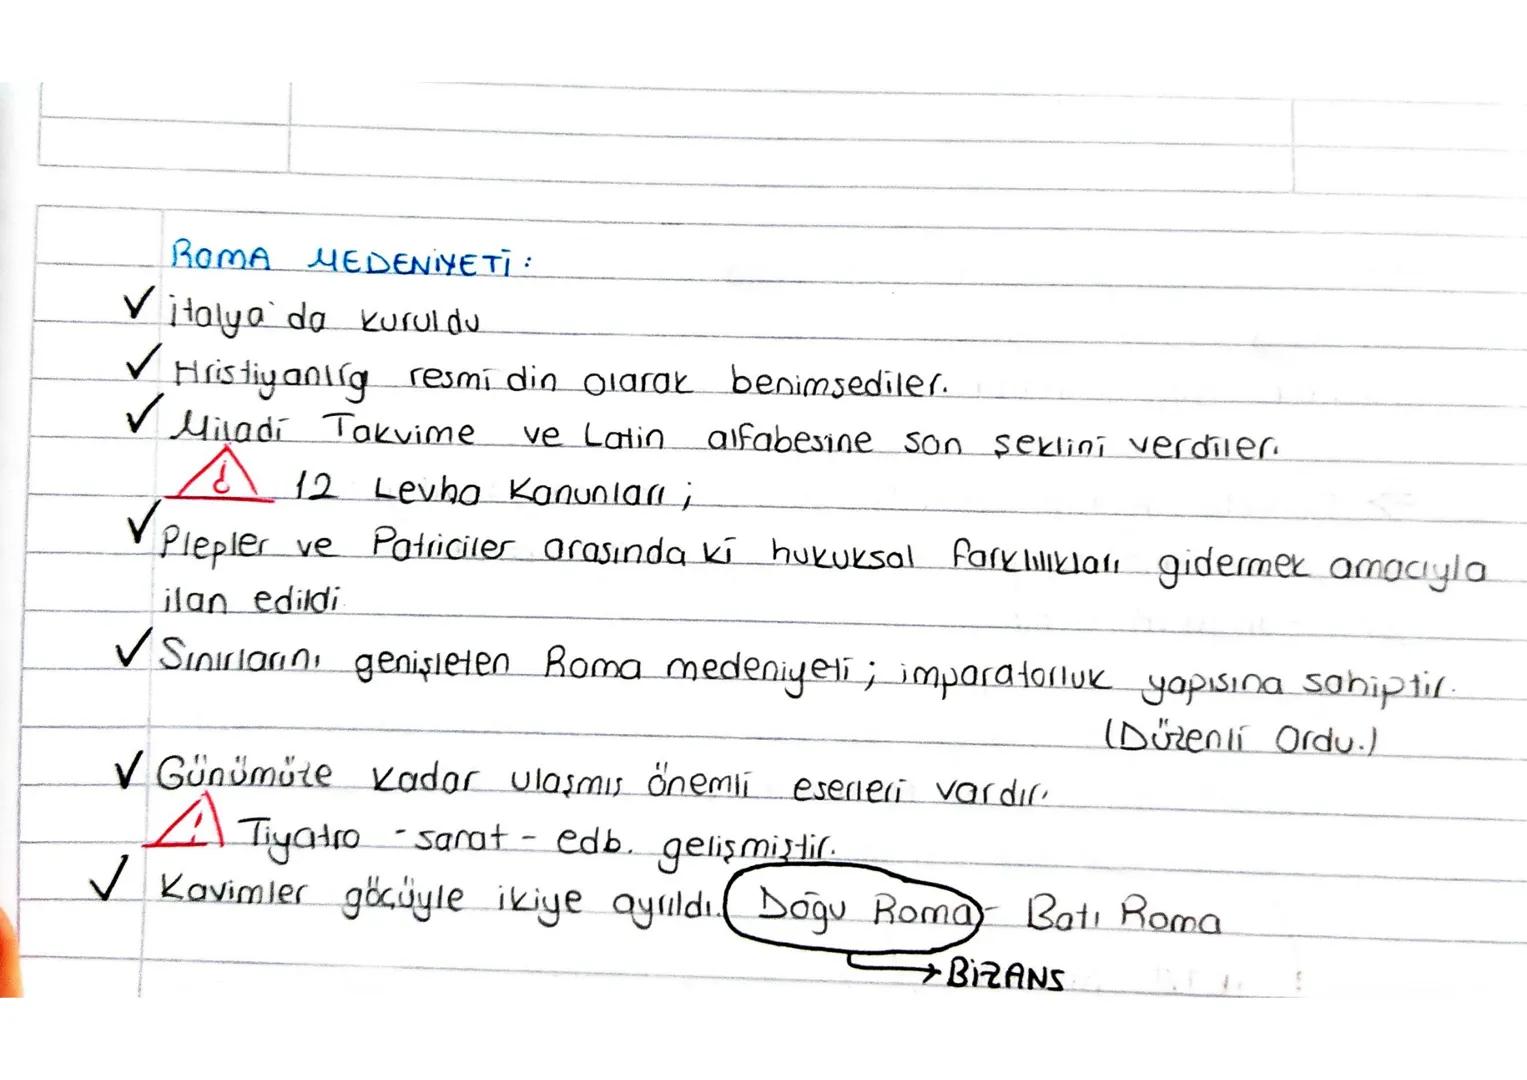 ROMA MEDENİYETİ :
✓ italya'da kuruldu
✓ Hristiyanlığ resmi din olarak benimsediler.
✓ Miladi Takvime ve Latin alfabesine son şeklini verdiler.
12 Levha Kanunları ;
✓ Plepler ve Patriciler arasında ki hukuksal farklılıkları gidermek amacıyla
ilan edildi
✓ Sınırlarını genişleten Roma medeniyeti ; imparatorluk yapısına sahiptir.
(Düzenli Ordu.)
✓ Günümüze kadar ulaşmış önemli eserleri vardır.
! Tiyatro - sanat - edb. gelişmiştir.
✓ Kavimler göçüyle ikiye ayrıldı. Doğu Roma - Batı Roma
→ BİZANS